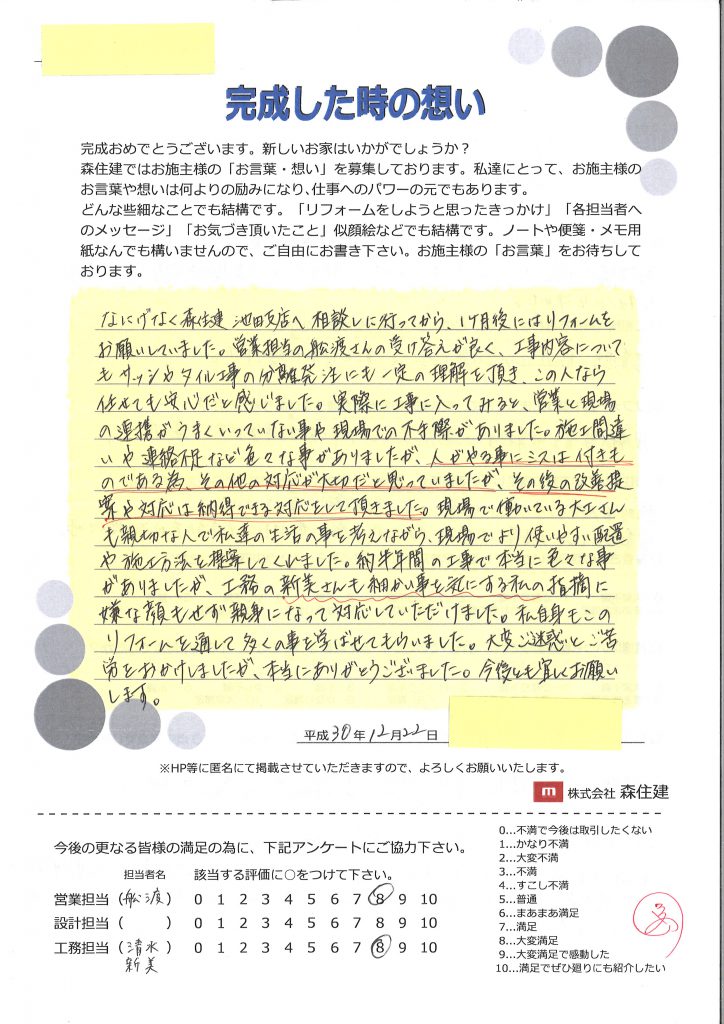 完成した時の想い
完成おめでとうございます。新しいお家はいかがでしょうか？
森住建ではお施主様の「お言葉・想い」を募集しております。私達にとって、お施主様の
お言葉や想いは何よりの励みになり、仕事へのパワーの元でもあります。
どんな些細なことでも結構です。「リフォームをしようと思ったきっかけ」「各担当者へ
のメッセージ」「お気づき頂いたこと」似顔絵などでも結構です。ノートや便箋・メモ用
紙なんでも構いませんので、ご自由にお書き下さい。お施主様の「お言葉」をお待ちして
おります。
なにげなく森住建 池田支店へ相談しに行ってから、1ヶ月後にはリフォームを
お願いしていました。営業担当の舩渡さんの受け答えが良く、工事内容について
もサッシやタイル工事の分離発注にも一定の理解を頂き、この人なら
任せても安心だと感じました。実際に工事に入ってみると、営業と現場
の連携がうまくいっていない事や現場での不手際がありました。施工間違
いや連絡不足など色々な事がありましたが、人がやる事にミスは付きも
のである為、その他の対応が大切だと思っていましたが、その後の改善提
案や対応は納得できる対応をして頂きました。現場で働いている大工さん
も親切な人で私達の生活の事を考えながら、現場でより使いやすい配置
や施工方法を提案してくれました。約半年間の工事で本当に色々な事
がありましたが、工務の新美さんも細かい事を気にする私の指摘に
嫌な顔もせず親身になって対応していただけました。私自身もこの
リフォームを通して多くの事を学ばせてもらいました。大変ご迷惑とご苦
労をおかけしましたが、本当にありがとうございました。今後とも宜しくお願い
します。
平成30年12月22日
※HP等に匿名にて掲載させていただきますので、よろしくお願いいたします。
m 株式会社 森住建
今後の更なる皆様の満足の為に、下記アンケートにご協力下さい。
担当者名 該当する評価に○をつけて下さい。
営業担当（舩渡） 0 1 2 3 4 5 6 7 8 9 10
設計担当（ ） 0 1 2 3 4 5 6 7 8 9 10
工務担当（清水 新美） 0 1 2 3 4 5 6 7 8 9 10
0…不満で今後は取引したくない
1…かなり不満
2…大変不満
3…不満
4…すこし不満
5…普通
6…まあまあ満足
7…満足
8…大変満足
9…大変満足で感動した
10…満足でぜひ廻りにも紹介したい